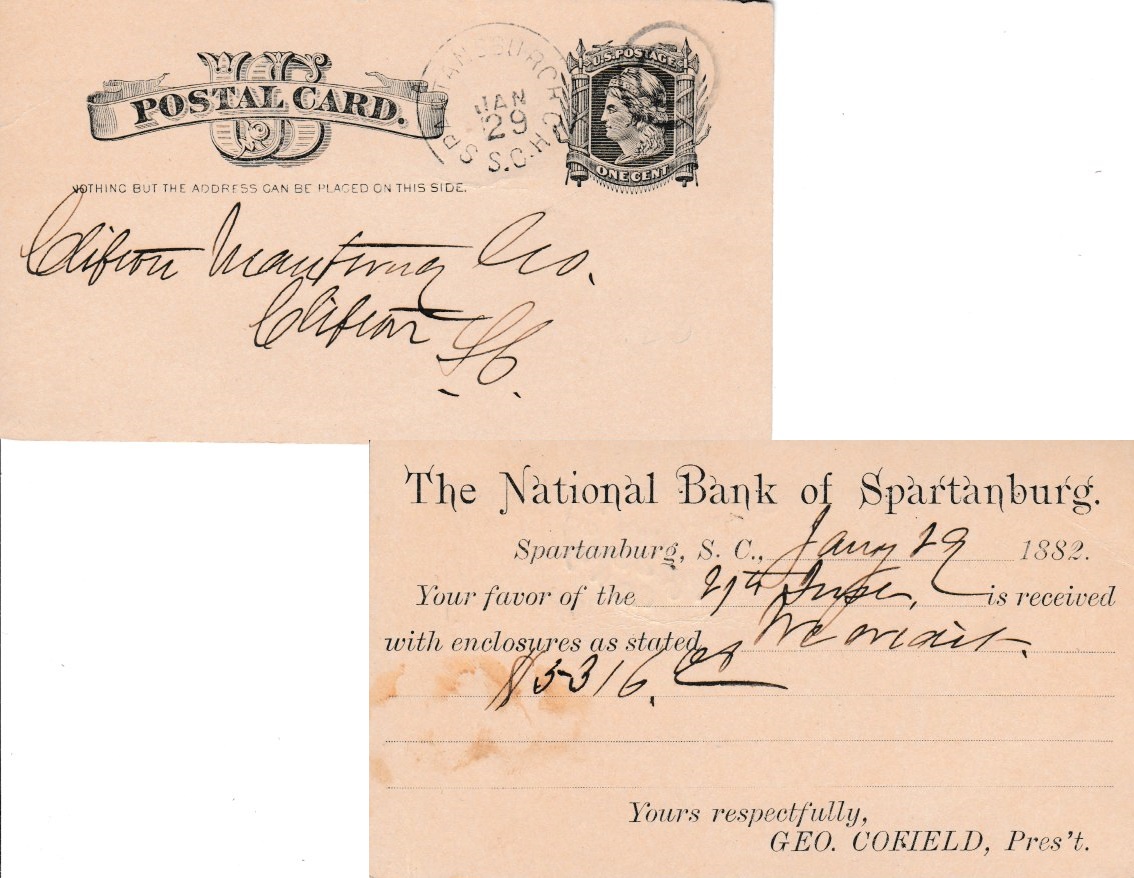 US
POSTAL CARD.
SPARTANSBURGH C.H.
JAN
29
S.C.
U.S. POSTAGE
ONE CENT
NOTHING BUT THE ADDRESS CAN BE PLACED ON THIS SIDE.
Clifton Manfturing Co.
Clifton SC.
The National Bank of Spartanburg.
Spartanburg, S. C., Jany 29 1882.
Your favor of the is received
with enclosures as stated We credit.
Yours respectfully,
GEO. COFIELD, Pres't.